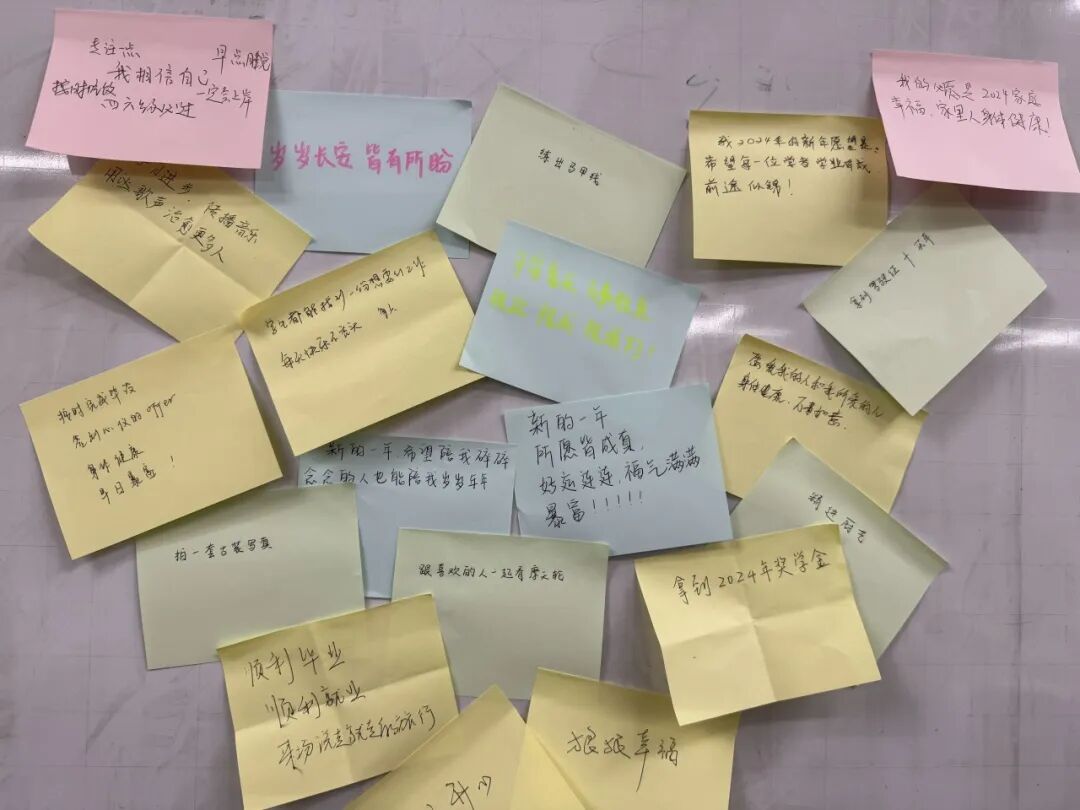 专注一点
早点睡觉
我相信自己
一定会上岸
四六级必过
岁岁长安 皆有所盼
练出马甲线
我2024年的新年愿望是：
希望每一位学者学业有成
前途似锦！
我的愿望是2024家庭
幸福、家里人身体健康！
用进步，陪播音乐
用歌声治愈更多人
拿到驾驶证
都能找到一份想要的工作
每天快乐
按时完成毕设
拿到心仪的offer
身体健康
早日暴富！
新的一年，希望陪我碎碎
念念的人也能陪我岁岁年年
新的一年
所愿皆成真，
好运连连，福气满满
暴富！！！！！
爱我的人和我所爱的人
身体健康，万事如意.
精进厨艺
拍一套古装写真
跟喜欢的人一起看摩天轮
拿到2024年奖学金
顺利毕业
顺利就业
来场说走就走的旅行
狠狠幸福
开心